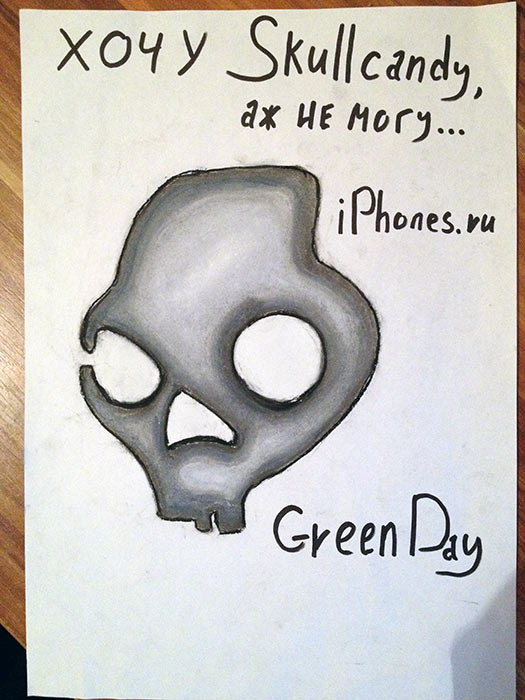 хочу Skullcandy,
аж не могу...
iPhones.ru
Green Day